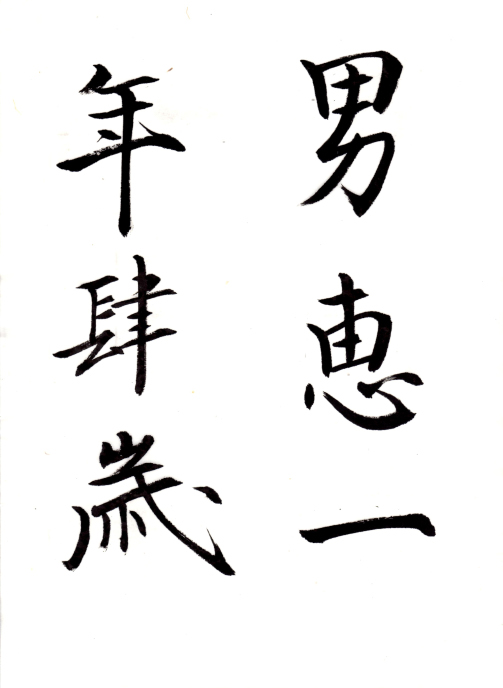 男恵一
年肆歳